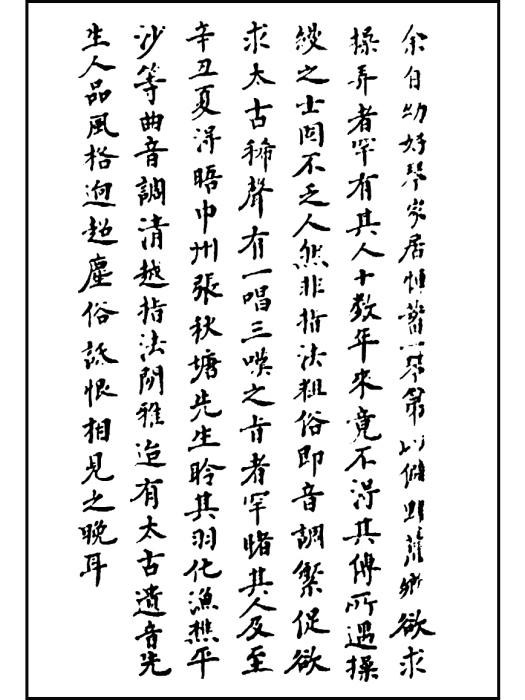 余自幼好琴家居恒蓄一琴第以僻處舊鄉欲求
操弄者罕有其人十数年來竟不得其傳所遇操
縵之士固不乏人然非指法粗俗即音調繁促欲
求太古稀聲有一唱三嘆之旨者罕睹其人及至
辛丑夏得晤中州張秋塘先生聆其羽化漁樵平
沙等曲音調清越指法閑雅迨有太古遺音先
生人品風格迥超塵俗詎恨相見之晚耳